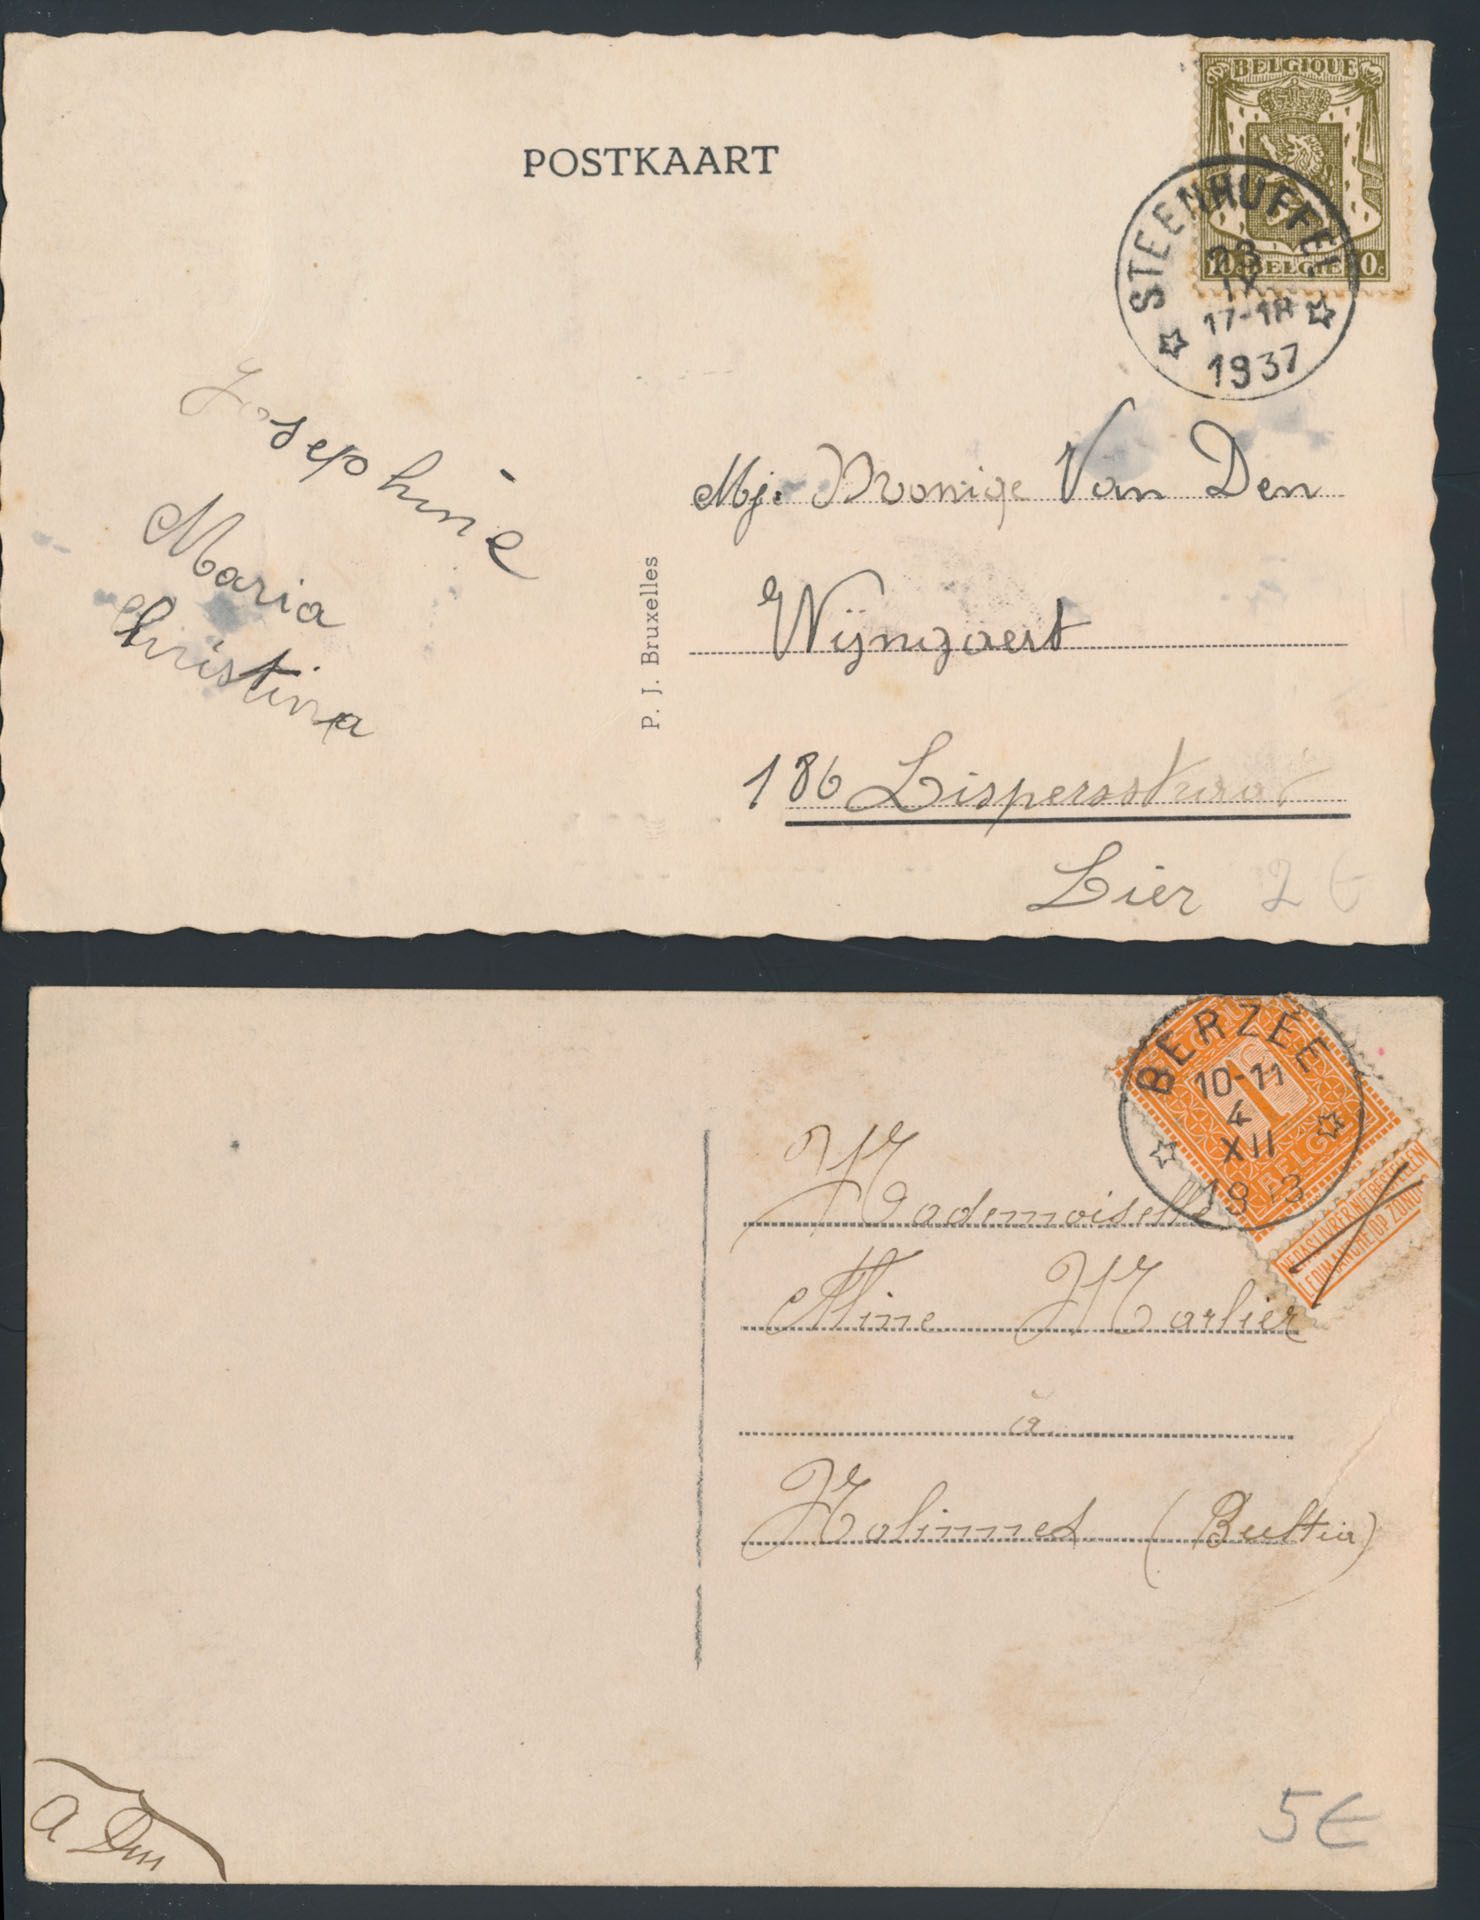 POSTKAART
BELGIQUE
10c BELGIE 10c
STEENHUFFEL
23
IX
17-18
1937
Josephine
Maria
Christina
P. J. Bruxelles
Mj. Monique Van Den
Wijngaert
186 Lispersstraat
Lier
2 €
BERZÉE
10-11
4
XII
1913
1c
BELGIË
NE PAS LIVRER NIET BESTELLEN
LE DIMANCHE OP ZONDAG
Mademoiselle
Aline Marlier
à
Molinnes
a Dm
5€